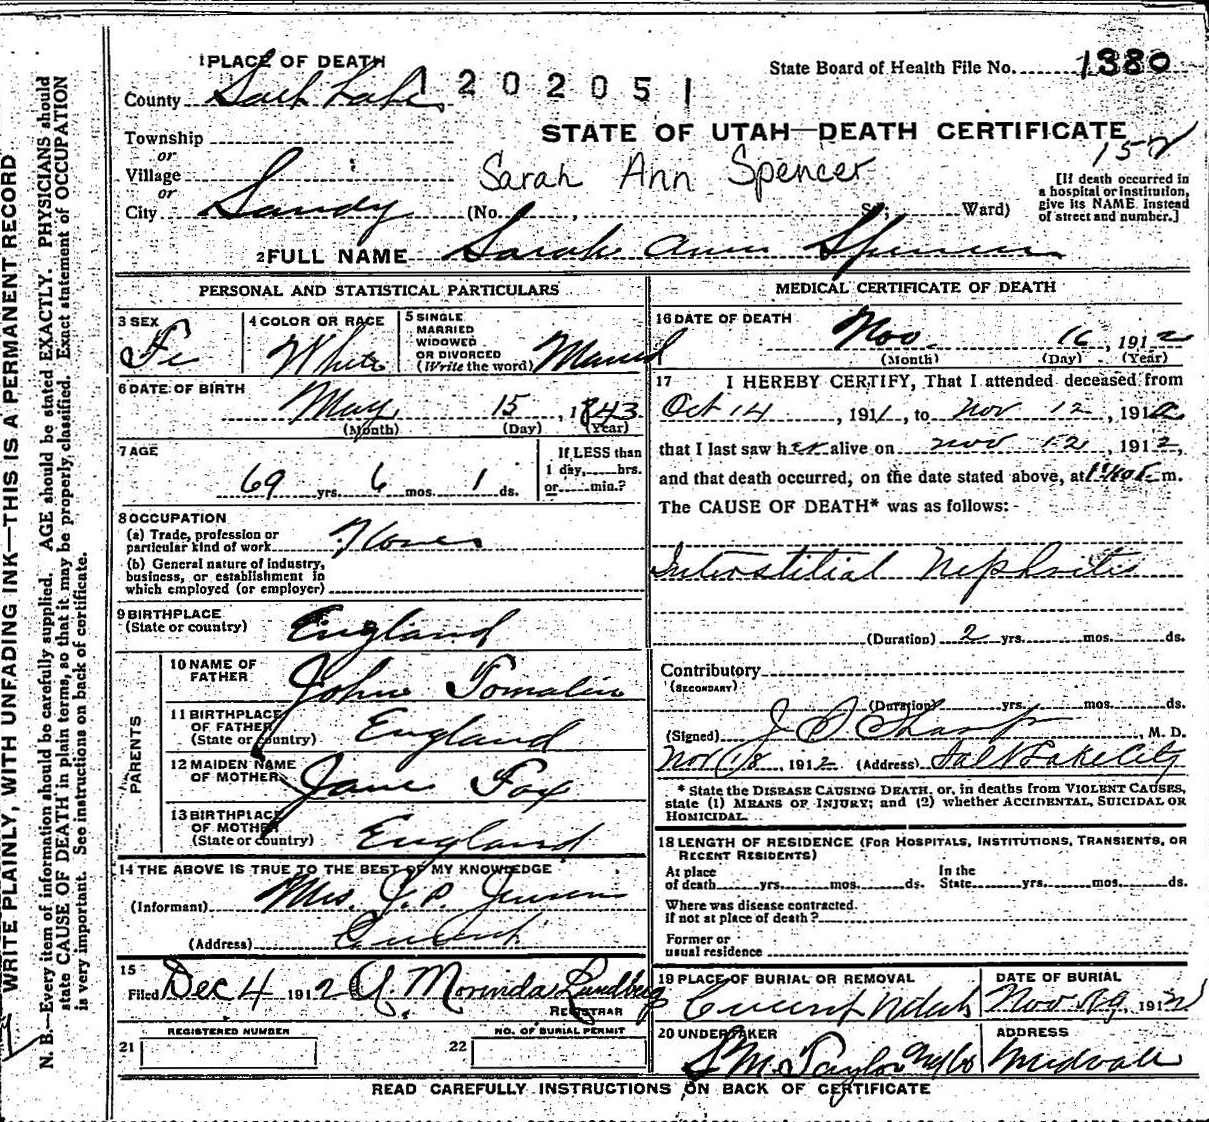 1 PLACE OF DEATH
State Board of Health File No. 1380
County Salt Lake
1202051
STATE OF UTAH—DEATH CERTIFICATE
Township
or
Village
or
City Sandy
Sarah Ann Spencer
152
(No. , St; Ward)
[If death occurred in
a hospital or institution,
give its NAME. instead
of street and number.]
2 FULL NAME Sarah Ann Spencer
PERSONAL AND STATISTICAL PARTICULARS
3 SEX
Fe
4 COLOR OR RACE
White
5 SINGLE
MARRIED
WIDOWED
OR DIVORCED
(Write the word) Married
6 DATE OF BIRTH
May 15, 1843
(Month) (Day) (Year)
7 AGE
69 yrs. 6 mos. 1 ds.
If LESS than
1 day, hrs.
or min.?
8 OCCUPATION
(a) Trade, profession or
particular kind of work
(b) General nature of industry,
business, or establishment in
which employed (or employer)
9 BIRTHPLACE
(State or country) England
PARENTS
10 NAME OF
FATHER John Tomalin
11 BIRTHPLACE
OF FATHER
(State or country) England
12 MAIDEN NAME
OF MOTHER Jane Fox
13 BIRTHPLACE
OF MOTHER
(State or country) England
14 THE ABOVE IS TRUE TO THE BEST OF MY KNOWLEDGE
(Informant) Mrs. J. P. Jensen
(Address)
15
Filed Dec 4 1912 A. Morinda Lundberg
REGISTRAR
REGISTERED NUMBER
21
NO. OF BURIAL PERMIT
22
MEDICAL CERTIFICATE OF DEATH
16 DATE OF DEATH
Nov. 16, 1912
(Month) (Day) (Year)
17 I HEREBY CERTIFY, That I attended deceased from
Oct 14, 1911, to Nov 12, 1912
that I last saw her alive on Nov 12, 1912,
and that death occurred, on the date stated above, at m.
The CAUSE OF DEATH* was as follows:-
Interstitial Nephritis
(Duration) 2 yrs. mos. ds.
Contributory
(SECONDARY)
(Duration) yrs. mos. ds.
(Signed) J F Sharp, M. D.
Nov 18, 1912 (Address) Salt Lake City
* State the DISEASE CAUSING DEATH, or, in deaths from VIOLENT CAUSES,
state (1) MEANS OF INJURY; and (2) whether ACCIDENTAL, SUICIDAL OR
HOMICIDAL.
18 LENGTH OF RESIDENCE (FOR HOSPITALS, INSTITUTIONS, TRANSIENTS, OR
RECENT RESIDENTS)
At place
of death yrs. mos. ds.
In the
State yrs. mos. ds.
Where was disease contracted.
if not at place of death?
Former or
usual residence
19 PLACE OF BURIAL OR REMOVAL
Utah
DATE OF BURIAL
Nov 19, 1912
20 UNDERTAKER
S M Taylor
ADDRESS
Midvale
READ CAREFULLY INSTRUCTIONS ON BACK OF CERTIFICATE
WRITE PLAINLY, WITH UNFADING INK—THIS IS A PERMANENT RECORD
N. B.—Every item of information should be carefully supplied. AGE should be stated EXACTLY. PHYSICIANS should
state CAUSE OF DEATH in plain terms, so that it may be properly classified. Exact statement of OCCUPATION
is very important. See instructions on back of certificate.